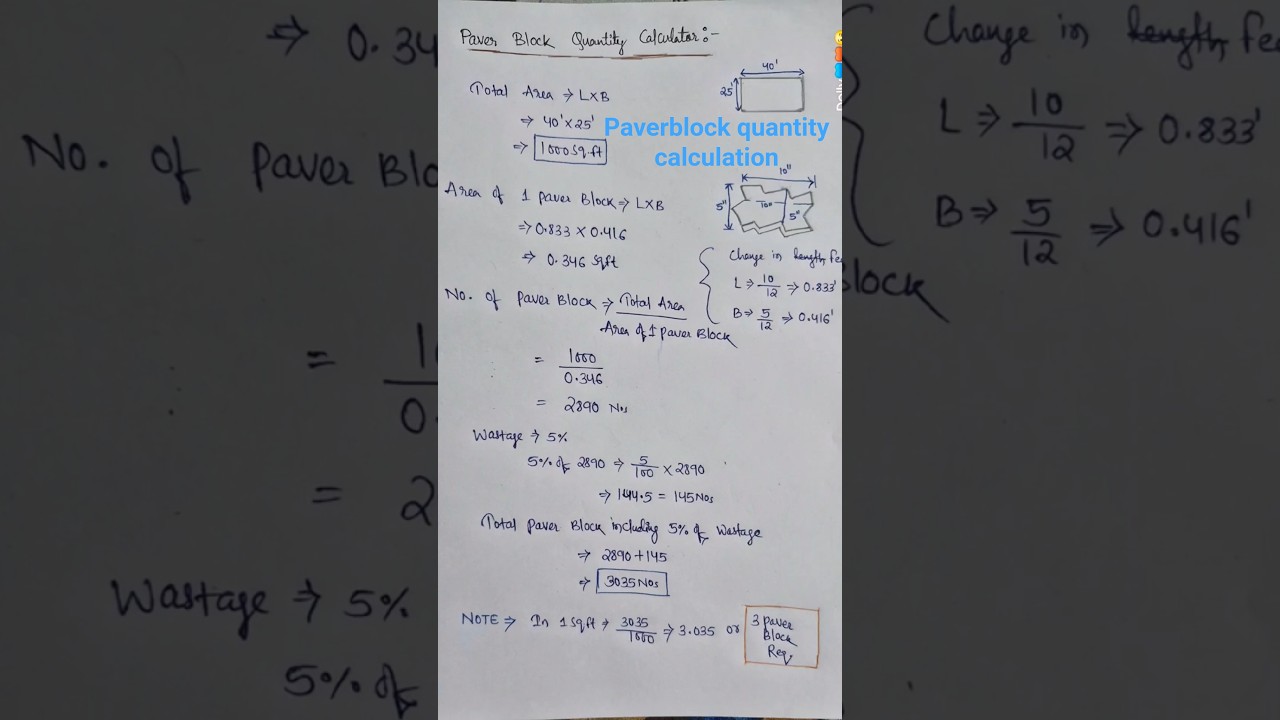 Paver Block Quantity Calculator:-
40'
25'
Total Area → L×B
⇒ 40'×25'
⇒ 1000 Sq.ft
Paverblock quantity
calculation
10"
5"
10"
5"
Area of 1 paver Block ⇒ L×B
⇒ 0.833 × 0.416
⇒ 0.346 Sqft
Change in length Fe
L ⇒ 10/12 ⇒ 0.833'
B ⇒ 5/12 ⇒ 0.416'
No. of Paver Block ⇒ Total Area / Area of 1 paver Block
= 1000/0.346
= 2890 Nos
Wastage → 5%
5% of 2890 ⇒ 5/100 × 2890
⇒ 144.5 = 145 Nos
Total paver Block including 5% of Wastage
⇒ 2890+145
⇒ 3035 Nos
NOTE ⇒ In 1 Sqft → 3035/1000 ⇒ 3.035 or 3 paver
Block
Req.
⇒ 0.34
No. of Paver Blo
=
= 2
Wastage → 5%
5% of
Change in length Fe
L ⇒ 10/12 ⇒ 0.833'
B ⇒ 5/12 ⇒ 0.416'
Block